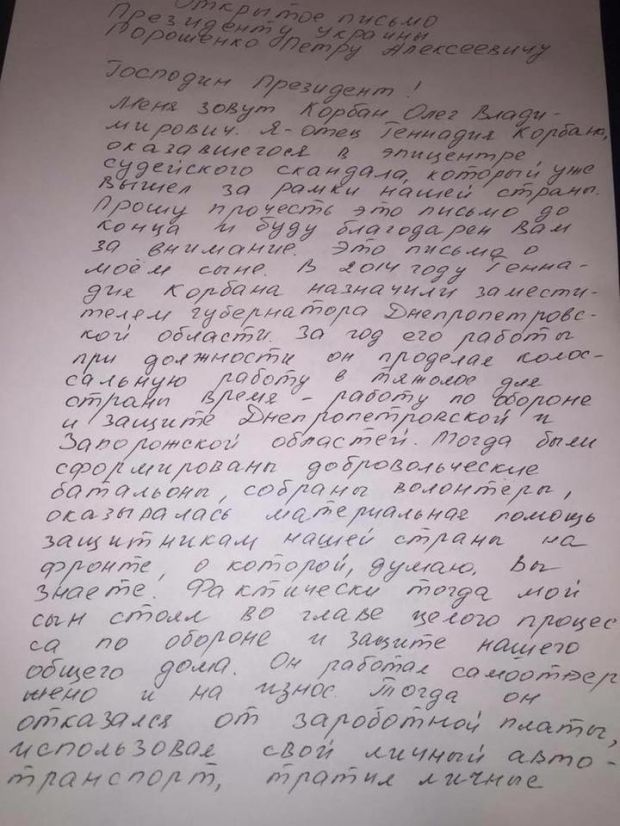 Открытое письмо
Президенту Украины
Порошенко Петру Алексеевичу
Господин Президент!
Меня зовут Корбан Олег Влади-
мирович. Я-отец Геннадия Корбана,
оказавшегося в эпицентре
судейского скандала, который уже
вышел за рамки нашей страны.
Прошу прочесть это письмо до
конца и буду благодарен Вам
за внимание. Это письмо о
моём сыне. В 2014 году Генна-
дия Корбана назначили замести-
телем губернатора Днепропетровс-
кой области. За год его работы
при должности он проделал колос-
сальную работу в тяжолое для
страны время - работу по обороне
и защите Днепропетровской и
Запорожской областей. Тогда были
сформированы добровольческие
батальоны, собраны волонтёры,
оказывалась материальная помощь
защитникам нашей страны на
фронте, о которой, думаю, Вы
знаете. Фактически тогда мой
сын стоял во главе целого процес
са по обороне и защите нашего
общего дома. Он работал самоотвер
жено и на износ. Тогда он
отказался от зароботной платы,
использовал свой личный авто-
транспорт, тратил личные